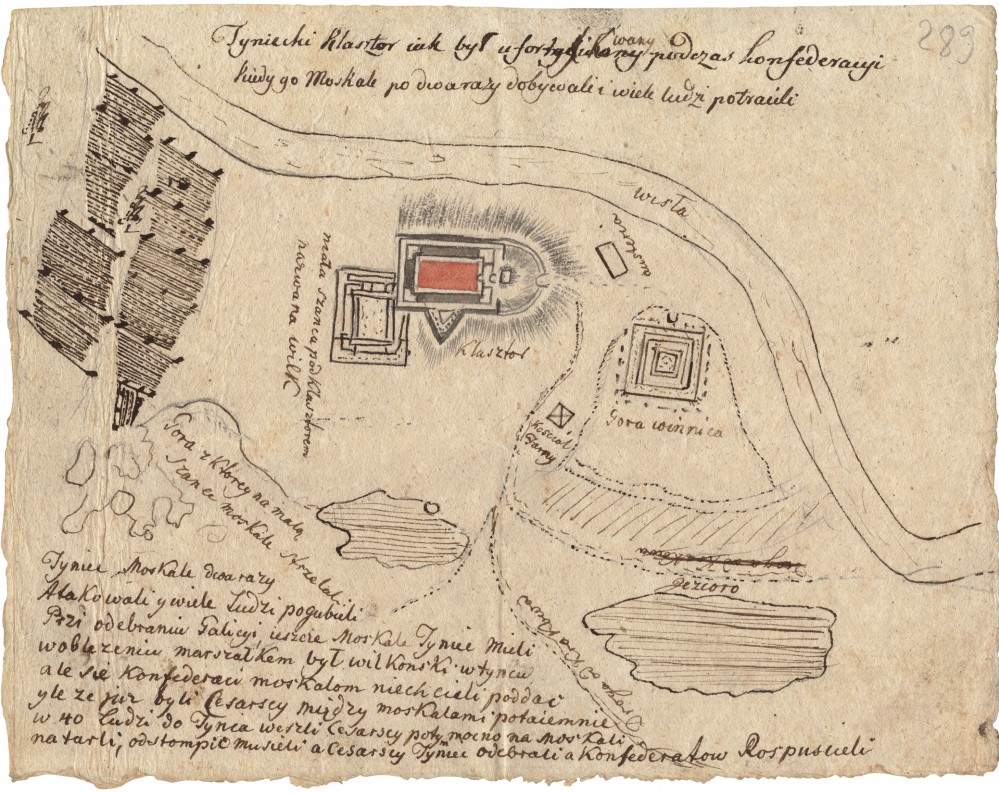 289
Tyniecki Klasztor iak był ufortyfikowany podczas konfederacyi
kiedy go Moskale po dwa razy dobywali i wiele ludzi potracili
wisła
austeria
mała szanca pod Klasztorem
nazwana wilk
Klasztor
Gora winnica
Kościół
Farny
Gora z ktorey na małą
szance moskale strzelali
Jezioro
Droga do Krakowa
Tyniec Moskale dwa razy
Atakowali y wiele Ludzi pogubili
Przi odebraniu Galicyi ieszcze Moskale Tyniec mieli
w oblęzeniu marszałkem był wilkonski w tyncu
ale sie Konfederaci moskalom niechcieli poddać
yle ze juz byli Cesarscy między moskalami potaiemnie
w 40 ludzi do Tynca weszli Cesarscy poty mocno na Moskali
natarli, odstompić musieli a Cesarscy Tyniec odebrali a Konfederatow Rospuscieli